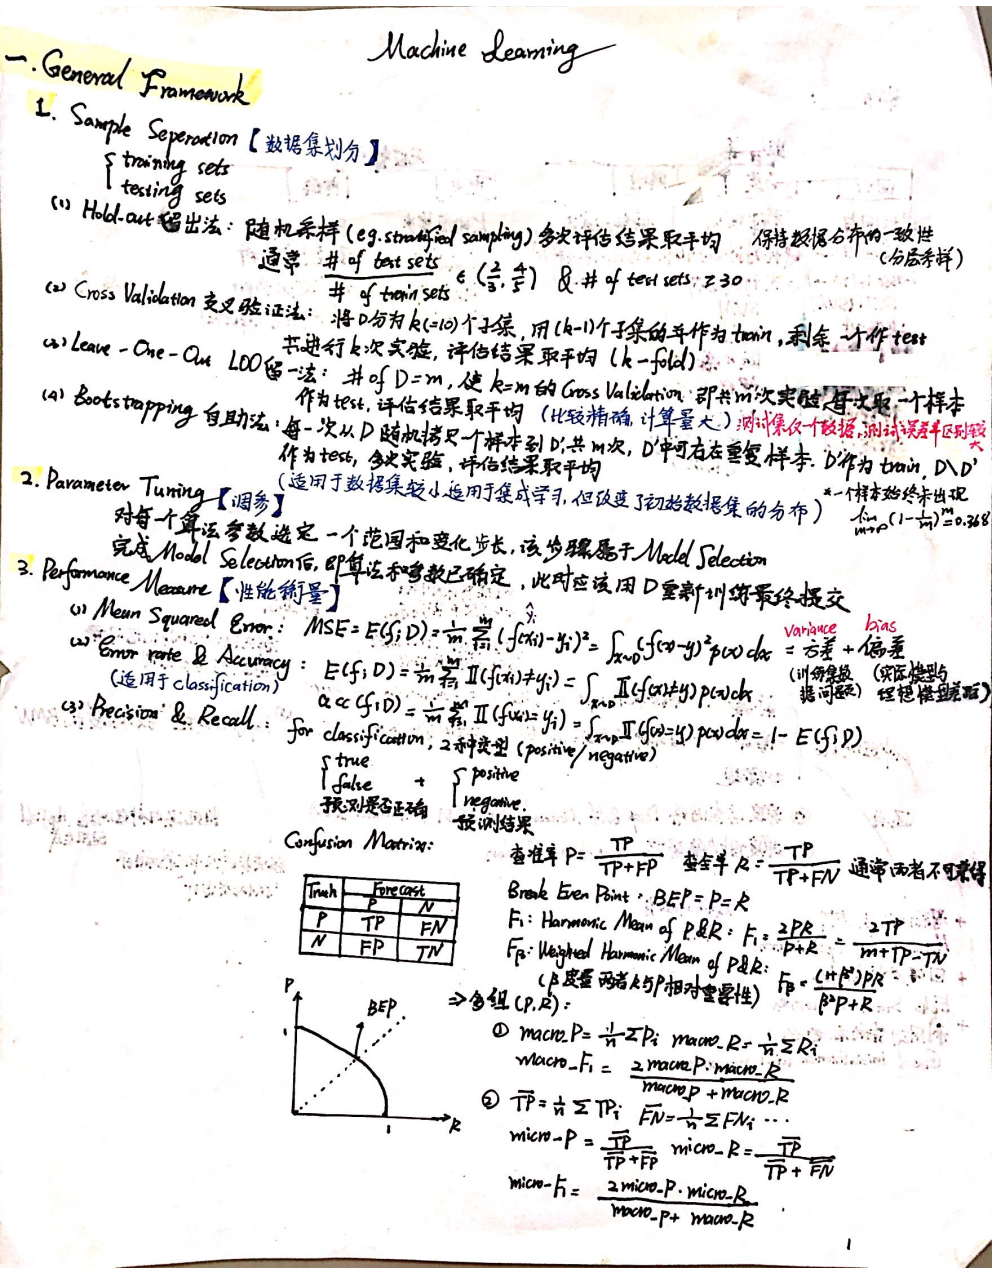 Machine Learning
一. General Framework
1. Sample Seperation【数据集划分】
{ training sets
testing sets
(1) Hold-out 留出法: 随机采样 (eg. stratified sampling) 多次评估结果取平均 保持数据分布的一致性
(分层采样)
通常 # of test sets / # of train sets ∈ (2/3, 4/5) & # of test sets ≥30
(2) Cross Validation 交叉验证法: 将D分为k(=10)个子集, 用(k-1)个子集的并作为train, 剩余一个作test
共进行k次实验, 评估结果取平均 (k-fold).
(3) Leave-One-Out LOO 留一法: # of D=m, 使k=m的Cross Validation 即共m次实验, 每次取一个样本
作为test, 评估结果取平均 (比较精确, 计算量大) 测试集仅一个数据, 测试误差率区别较大
(4) Bootstrapping 自助法: 每一次从D随机拷贝一个样本到D', 共m次, D'中可存在重复样本. D'作为train, D\D'
作为test, 多次实验, 评估结果取平均
(适用于数据集较小适用于集成学习, 但改变了初始数据集的分布) *一个样本始终未出现
lim m→∞ (1-1/m)^m = 0.368
2. Parameter Tuning【调参】
对每一个算法参数选定一个范围和变化步长, 该步骤属于Model Selection
完成Model Selection后, 即算法和参数已确定, 此时应该用D重新训练最终提交
3. Performance Measure【性能衡量】
(1) Mean Squared Error: MSE = E(f; D) = 1/m Σ_{i=1}^{m} (f(xi)-yi)² = ∫_{x~D} (f(x)-y)² p(x) dx = 方差 + 偏差
ŷi variance bias
(训练集数据问题) (实际模型与理想模型差距)
(2) Error rate & Accuracy: E(f; D) = 1/m Σ_{i=1}^{m} II(f(xi)≠yi) = ∫_{x~D} II(f(x)≠y) p(x) dx
(适用于classification) acc(f; D) = 1/m Σ_{i=1}^{m} II(f(xi)=yi) = ∫_{x~D} II(f(x)=y) p(x) dx = 1 - E(f; D)
(3) Precision & Recall: for classification, 2种类型 (positive/negative)
{ true + { positive
false negative.
预测是否正确 预测结果
Confusion Matrix:
Truth Forecast
P N
P TP FN
N FP TN
P
1
BEP
1
R
查准率 P = TP / (TP+FP) 查全率 R = TP / (TP+FN) 通常两者不可兼得
Break Even Point: BEP = P=R
F1: Harmonic Mean of P&R: F1 = 2PR / (P+R) = 2TP / (m+TP-TN)
Fβ: Weighted Harmonic Mean of P&R: Fβ = (1+β²)PR / (β²P+R)
(β度量两者R与P相对重要性)
⇒多组(P,R):
① macro_P = 1/n ΣPi macro_R = 1/n ΣRi
macro_F1 = 2 macro_P·macro_R / (macro_P + macro_R)
② T̅P̅ = 1/n ΣTPi F̅N̅ = 1/n ΣFNi ...
micro-P = T̅P̅ / (T̅P̅+F̅P̅) micro_R = T̅P̅ / (T̅P̅+F̅N̅)
micro-F1 = 2micro_P·micro_R / (macro_P + macro_R)
1